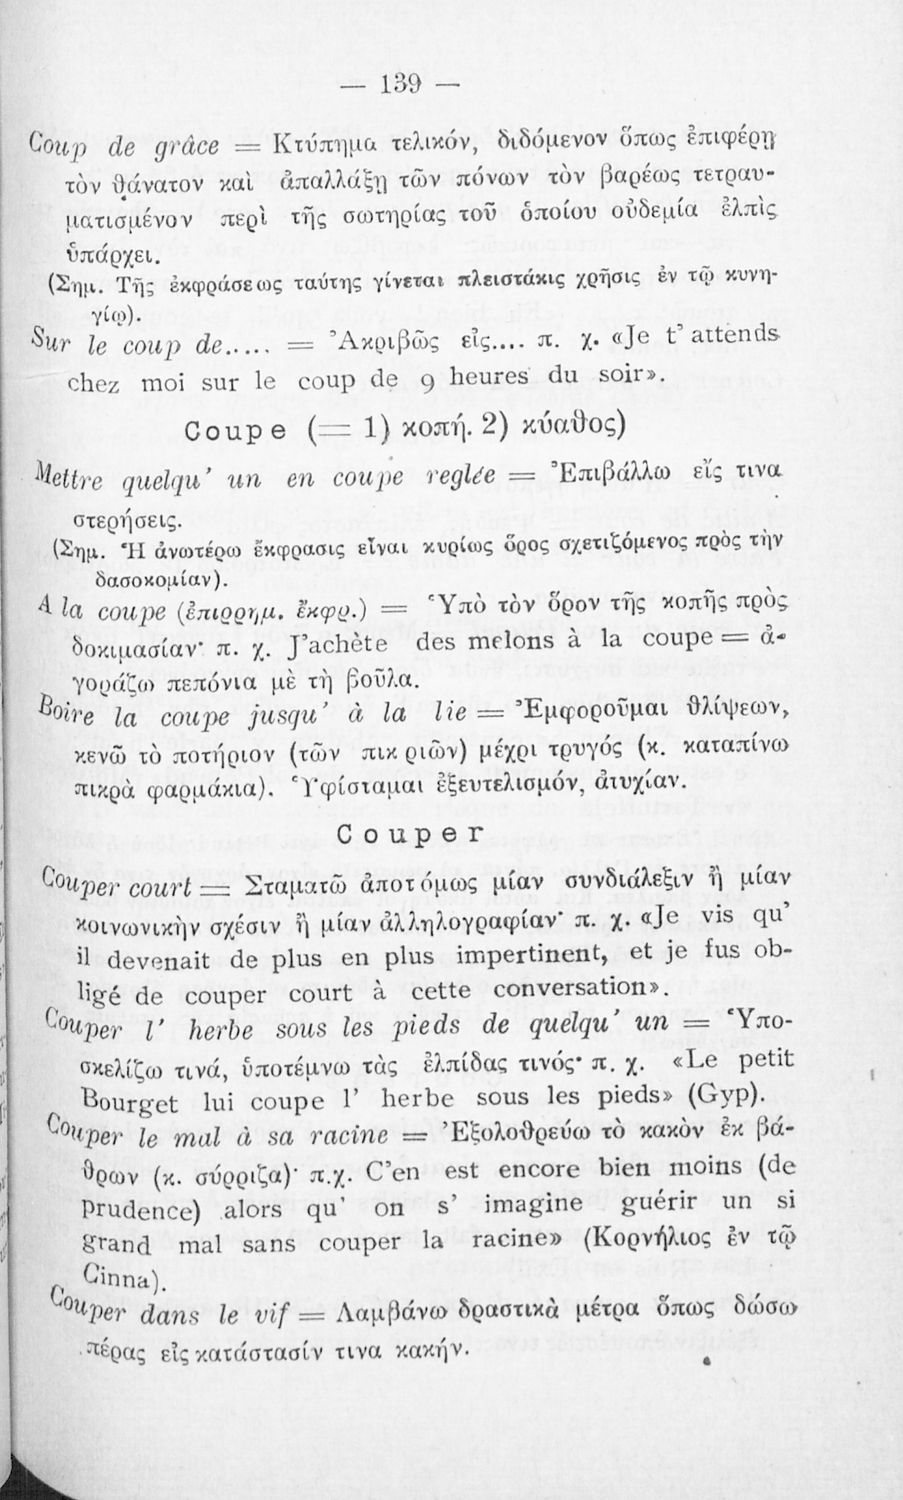 — 139 —
Coup de grâce = Κτύπημα τελικόν, διδόμενον ὅπως ἐπιφέρῃ
τὸν θάνατον καὶ ἀπαλλάξῃ τῶν πόνων τὸν βαρέως τετραυ-
ματισμένον περὶ τῆς σωτηρίας τοῦ ὁποίου οὐδεμία ἐλπὶς
ὑπάρχει.
(Σημ. Τῆς ἐκφράσεως ταύτης γίνεται πλειστάκις χρῆσις ἐν τῷ κυνη-
γίῳ).
Sur le coup de..... = Ἀκριβῶς εἰς.... π. χ. «Je t’ attends
chez moi sur le coup de 9 heures du soir».
Coupe (= 1) κοπή. 2) κύαθος)
Mettre quelqu’ un en coupe reglée = Ἐπιβάλλω εἴς τινα
στερήσεις.
(Σημ. Ἡ ἀνωτέρω ἔκφρασις εἶναι κυρίως ὅρος σχετιζόμενος πρὸς τὴν
δασοκομίαν).
A la coupe (ἐπιρρημ. ἔκφρ.) = Ὑπὸ τὸν ὅρον τῆς κοπῆς πρὸς
δοκιμασίαν· π. χ. J’achète des melons à la coupe = ἀ-
γοράζω πεπόνια μὲ τὴ βοῦλα.
Boire la coupe jusqu’ à la lie = Ἐμφοροῦμαι θλίψεων,
κενῶ τὸ ποτήριον (τῶν πικριῶν) μέχρι τρυγός (κ. καταπίνω
πικρὰ φαρμάκια). Ὑφίσταμαι ἐξευτελισμόν, ἀτυχίαν.
Couper
Couper court = Σταματῶ ἀποτόμως μίαν συνδιάλεξιν ἢ μίαν
κοινωνικὴν σχέσιν ἢ μίαν ἀλληλογραφίαν· π. χ. «Je vis qu’
il devenait de plus en plus impertinent, et je fus ob-
ligé de couper court à cette conversation».
Couper l’ herbe sous les pieds de quelqu’ un = Ὑπο-
σκελίζω τινά, ὑποτέμνω τὰς ἐλπίδας τινός· π. χ. «Le petit
Bourget lui coupe l’ herbe sous les pieds» (Gyp).
Couper le mal à sa racine = Ἐξολοθρεύω τὸ κακὸν ἐκ βά-
θρων (κ. σύρριζα)· π.χ. C’en est encore bien moins (de
prudence) alors qu’ on s’ imagine guérir un si
grand mal sans couper la racine» (Κορνήλιος ἐν τῷ
Cinna).
Couper dans le vif = Λαμβάνω δραστικὰ μέτρα ὅπως δώσω
πέρας εἰς κατάστασίν τινα κακήν.